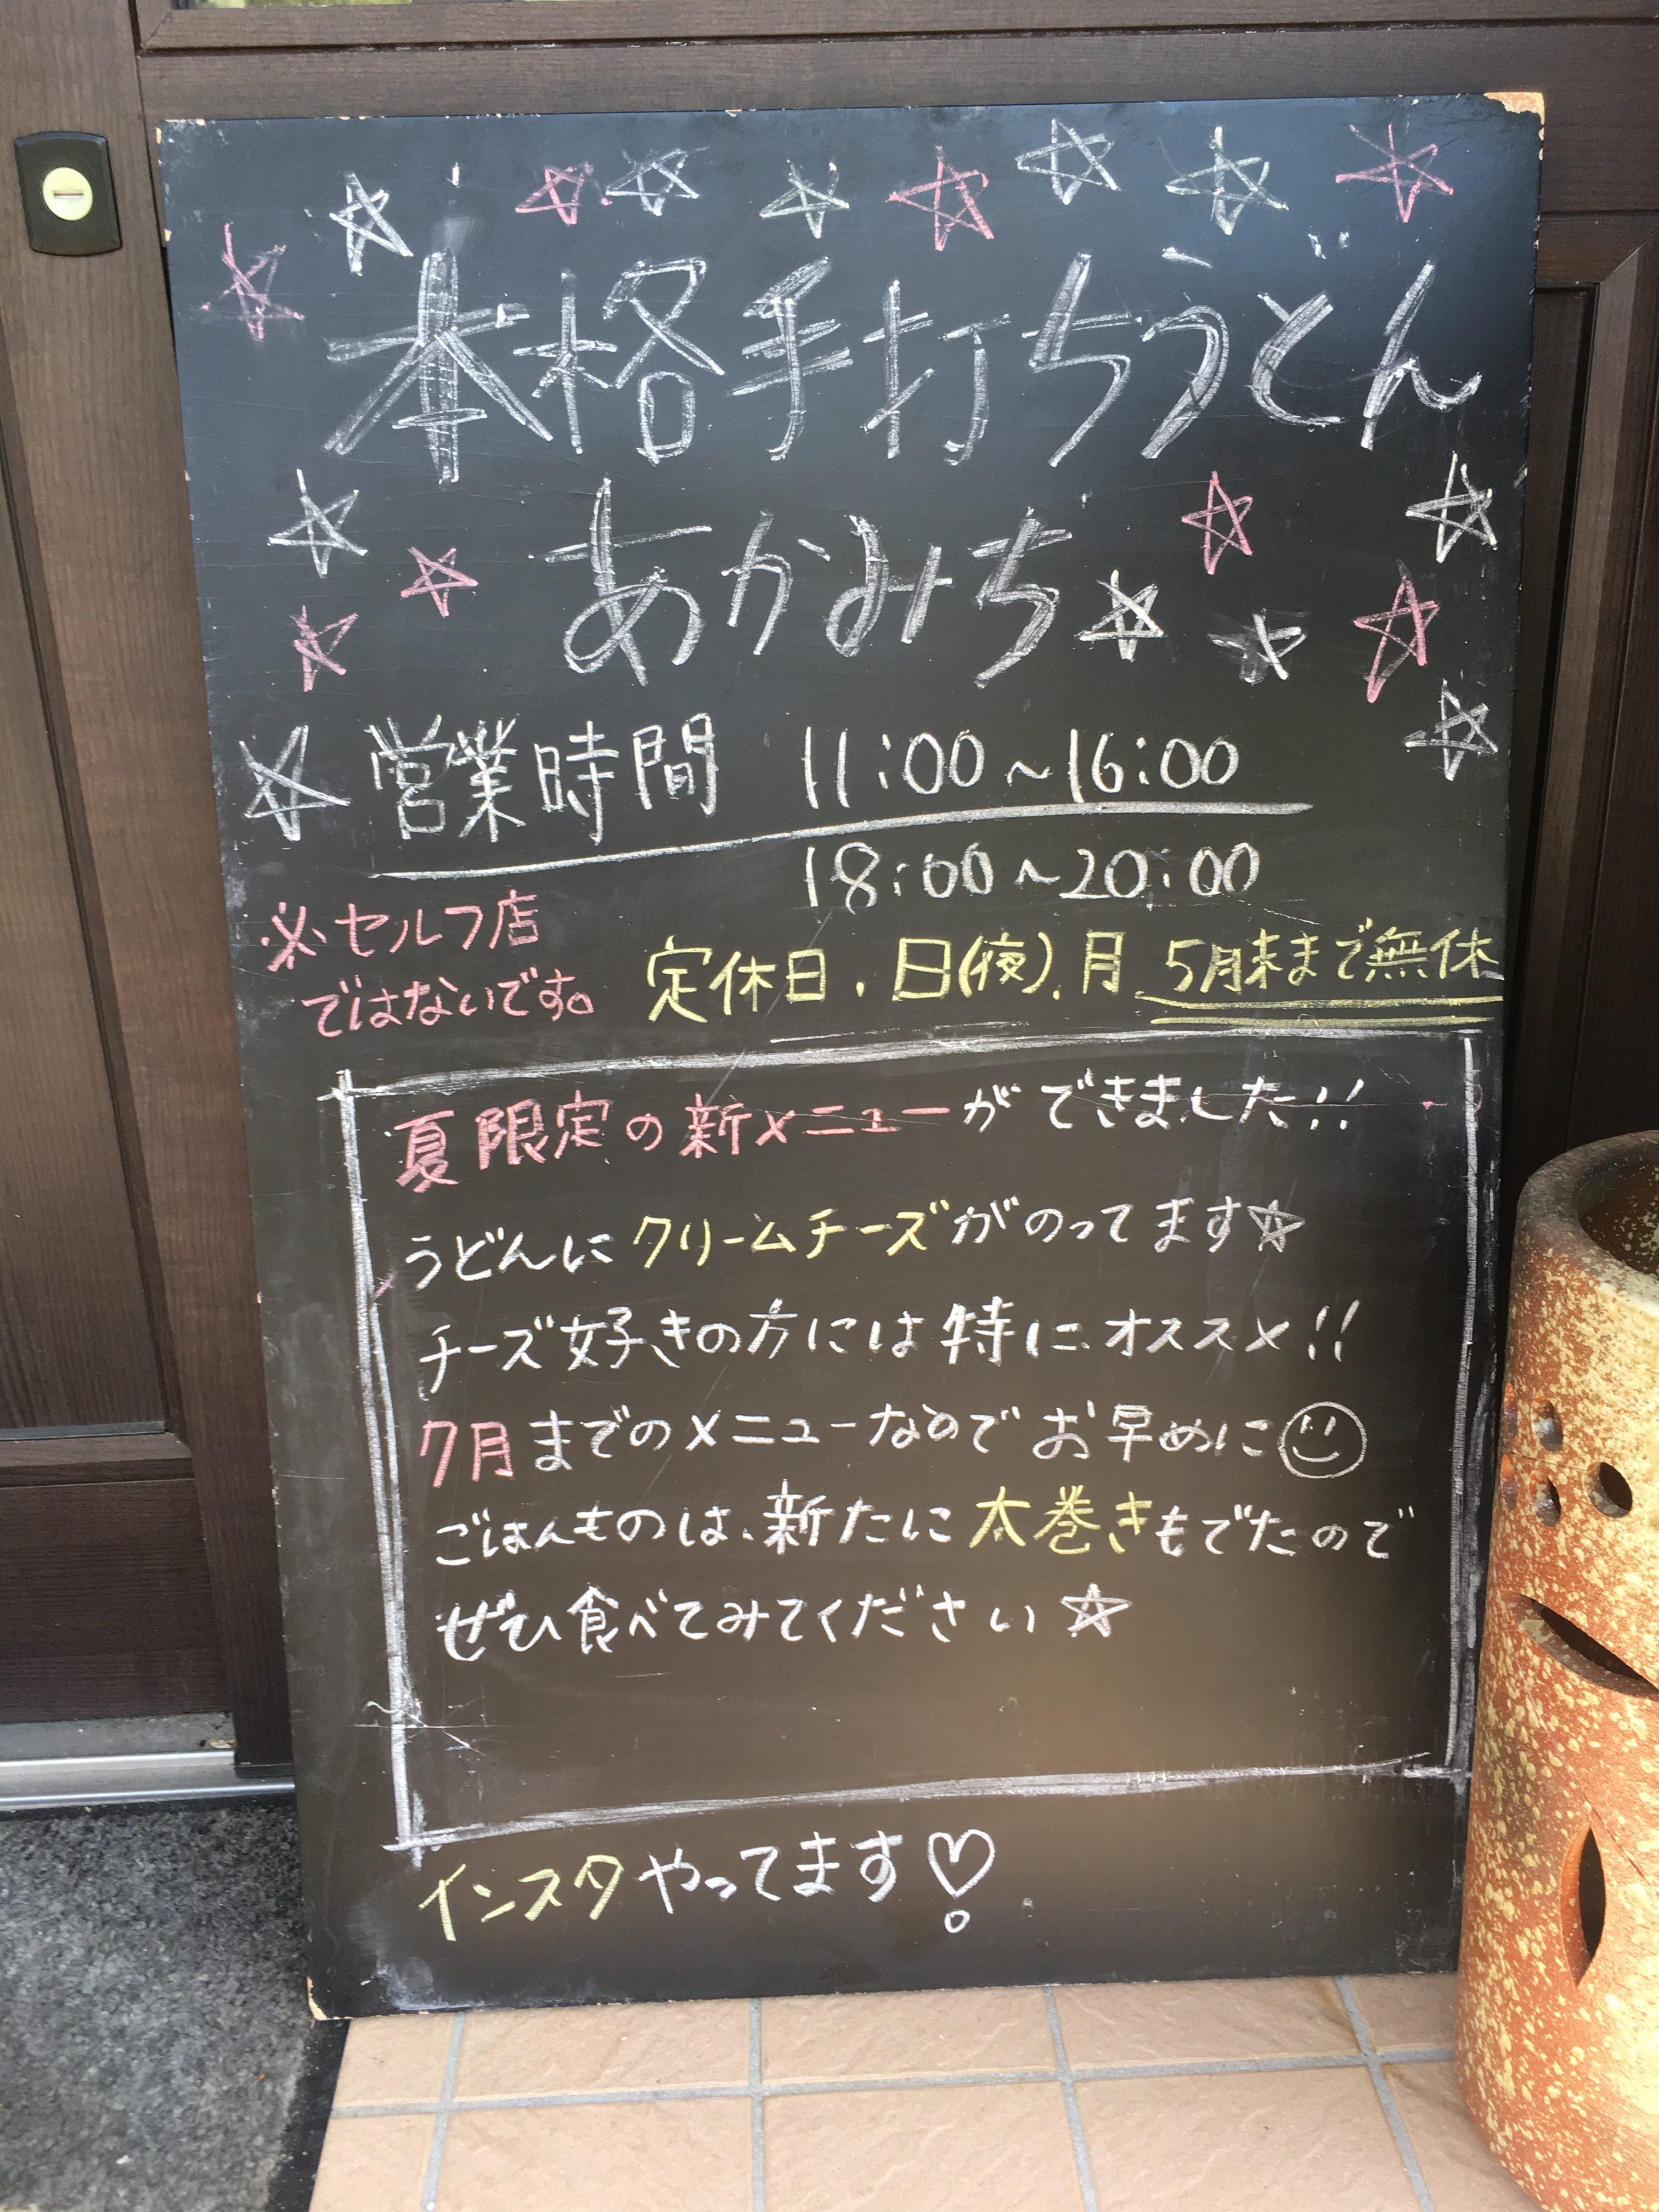 本格手打ちうどん
あかみち
営業時間 11:00~16:00
18:00~20:00
※セルフ店
ではないです。
定休日.日(夜).月 5月末まで無休
夏限定の新メニューができました!!
うどんにクリームチーズがのってます☆
チーズ好きの方には特にオススメ!!
7月までのメニューなのでお早めに
ごはんものは、新たに太巻きもでたので
ぜひ食べてみてください☆
インスタやってます♡